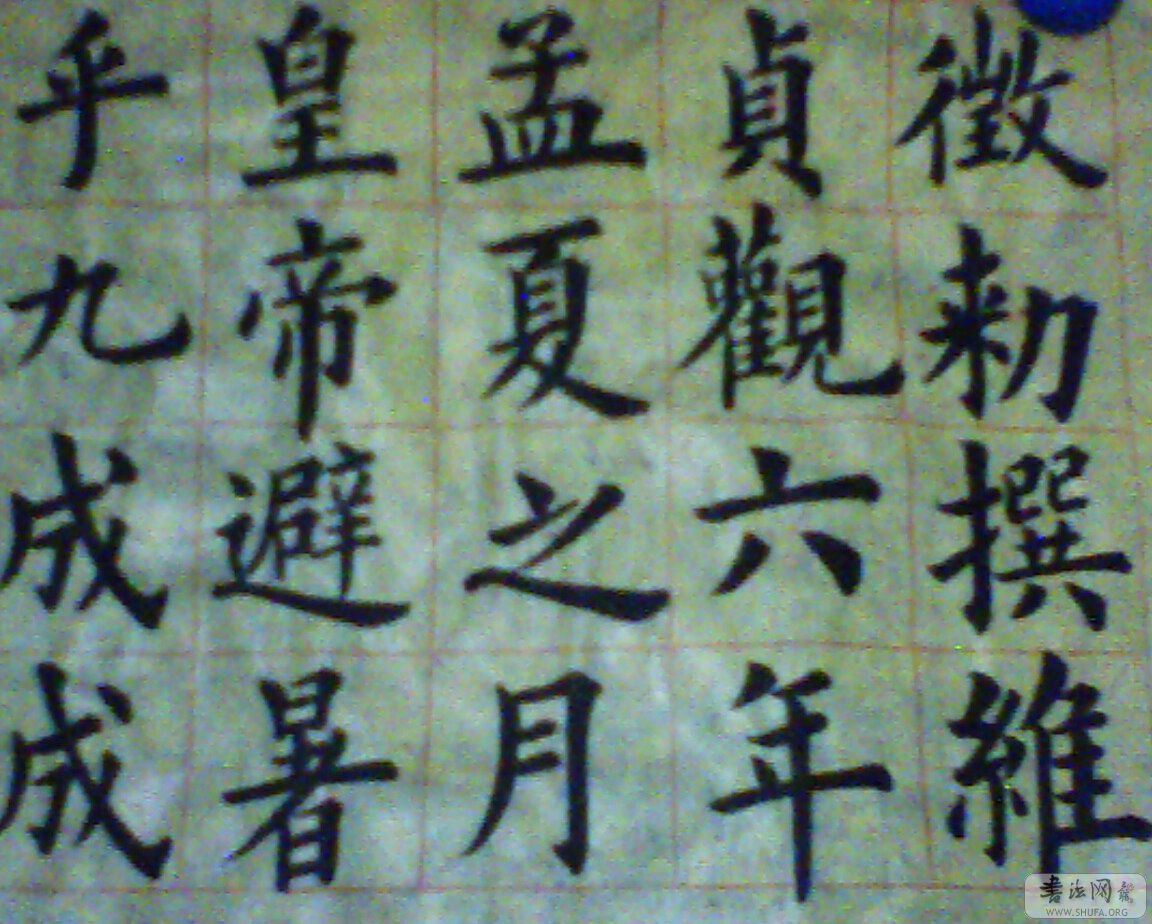 徵勑撰維
貞觀六年
孟夏之月
皇帝避暑
乎九成成
書法网
WWW.SHUFA.ORG